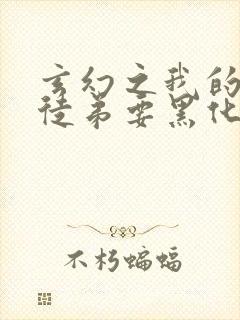 玄幻之我的
徒弟要黑化
不朽蝙蝠